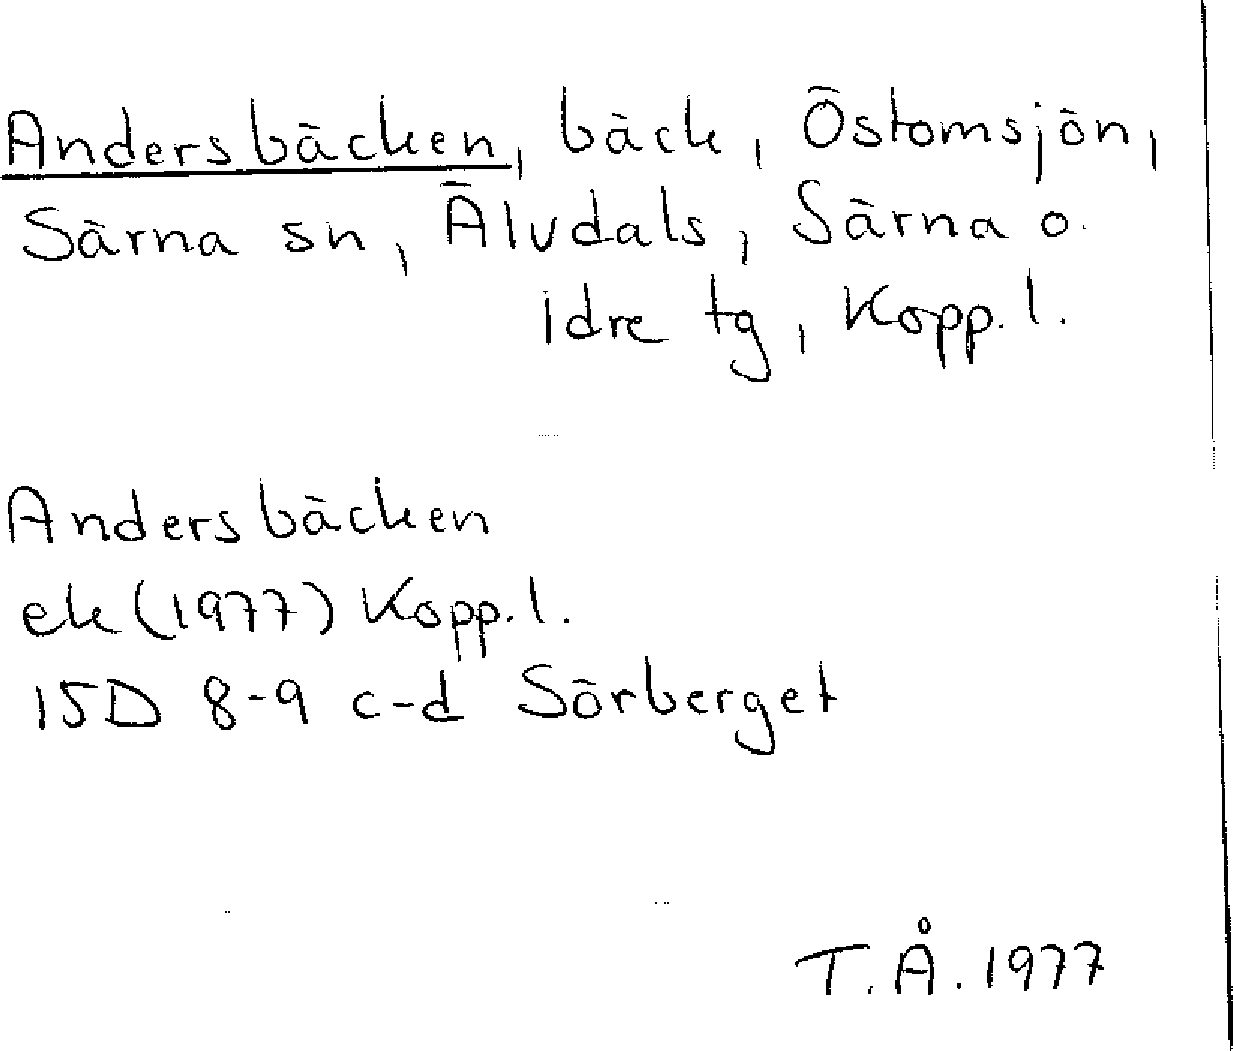 Andersbäcken, bäck, Östomsjön,
Särna sn, Älvdals, Särna o.
idre tg, Kopp. l.
Andersbäcken
ek (1977) Kopp. l.
15D 8-9 c-d Sörberget
T. Å. 1977